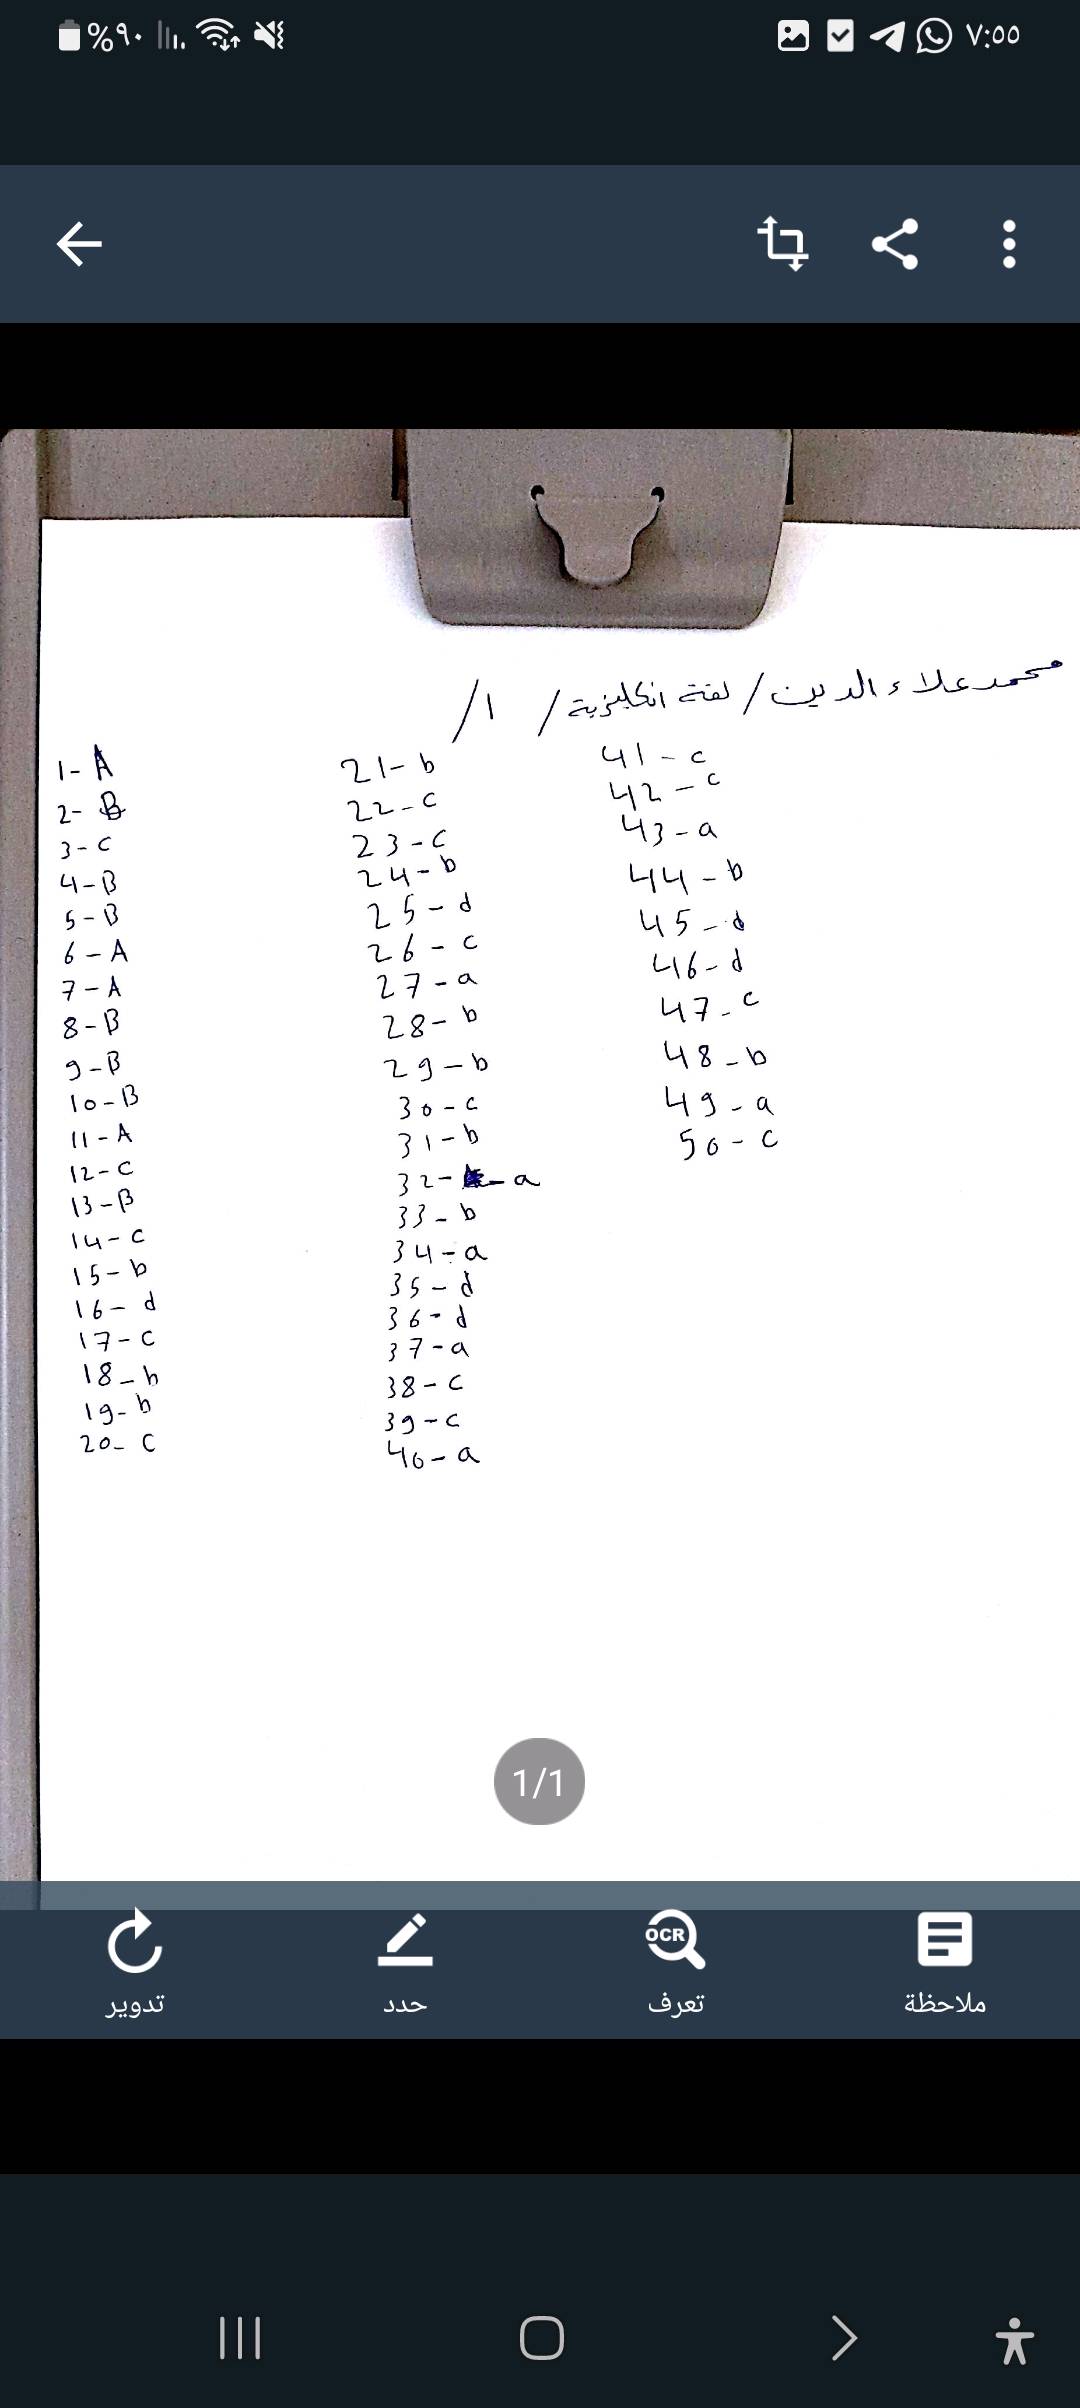 %٩٠
٧:٥٥
محمد علاء الدين / لغة انكليزية / ١ /
1- A
2- B
3- C
4- B
5- B
6 - A
7 - A
8 - B
9 - B
10 - B
11 - A
12 - C
13 - B
14 - C
15 - b
16 - d
17 - C
18 - b
19 - b
20 - C
21 - b
22 - C
23 - C
24 - b
25 - d
26 - C
27 - a
28 - b
29 - b
30 - C
31 - b
32 - a
33 - b
34 - a
35 - d
36 - d
37 - a
38 - C
39 - C
40 - a
41 - C
42 - C
43 - a
44 - b
45 - d
46 - d
47 - C
48 - b
49 - a
50 - C
1/1
OCR
تدوير
حدد
تعرف
ملاحظة